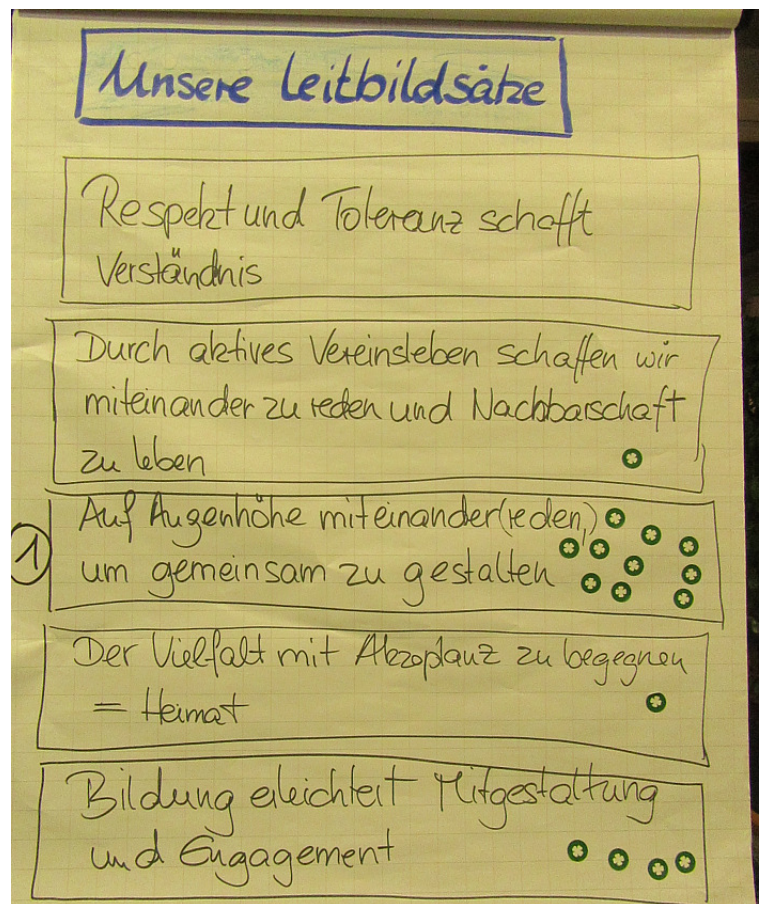 Unsere Leitbildsätze
Respekt und Toleranz schafft
Verständnis
Durch aktives Vereinsleben schaffen wir
miteinander zu reden und Nachbarschaft
zu leben
Auf Augenhöhe miteinander (reden,)
1
um gemeinsam zu gestalten
Der Vielfalt mit Akzeptanz zu begegnen
= Heimat
Bildung erleichtert Mitgestaltung
und Engagement